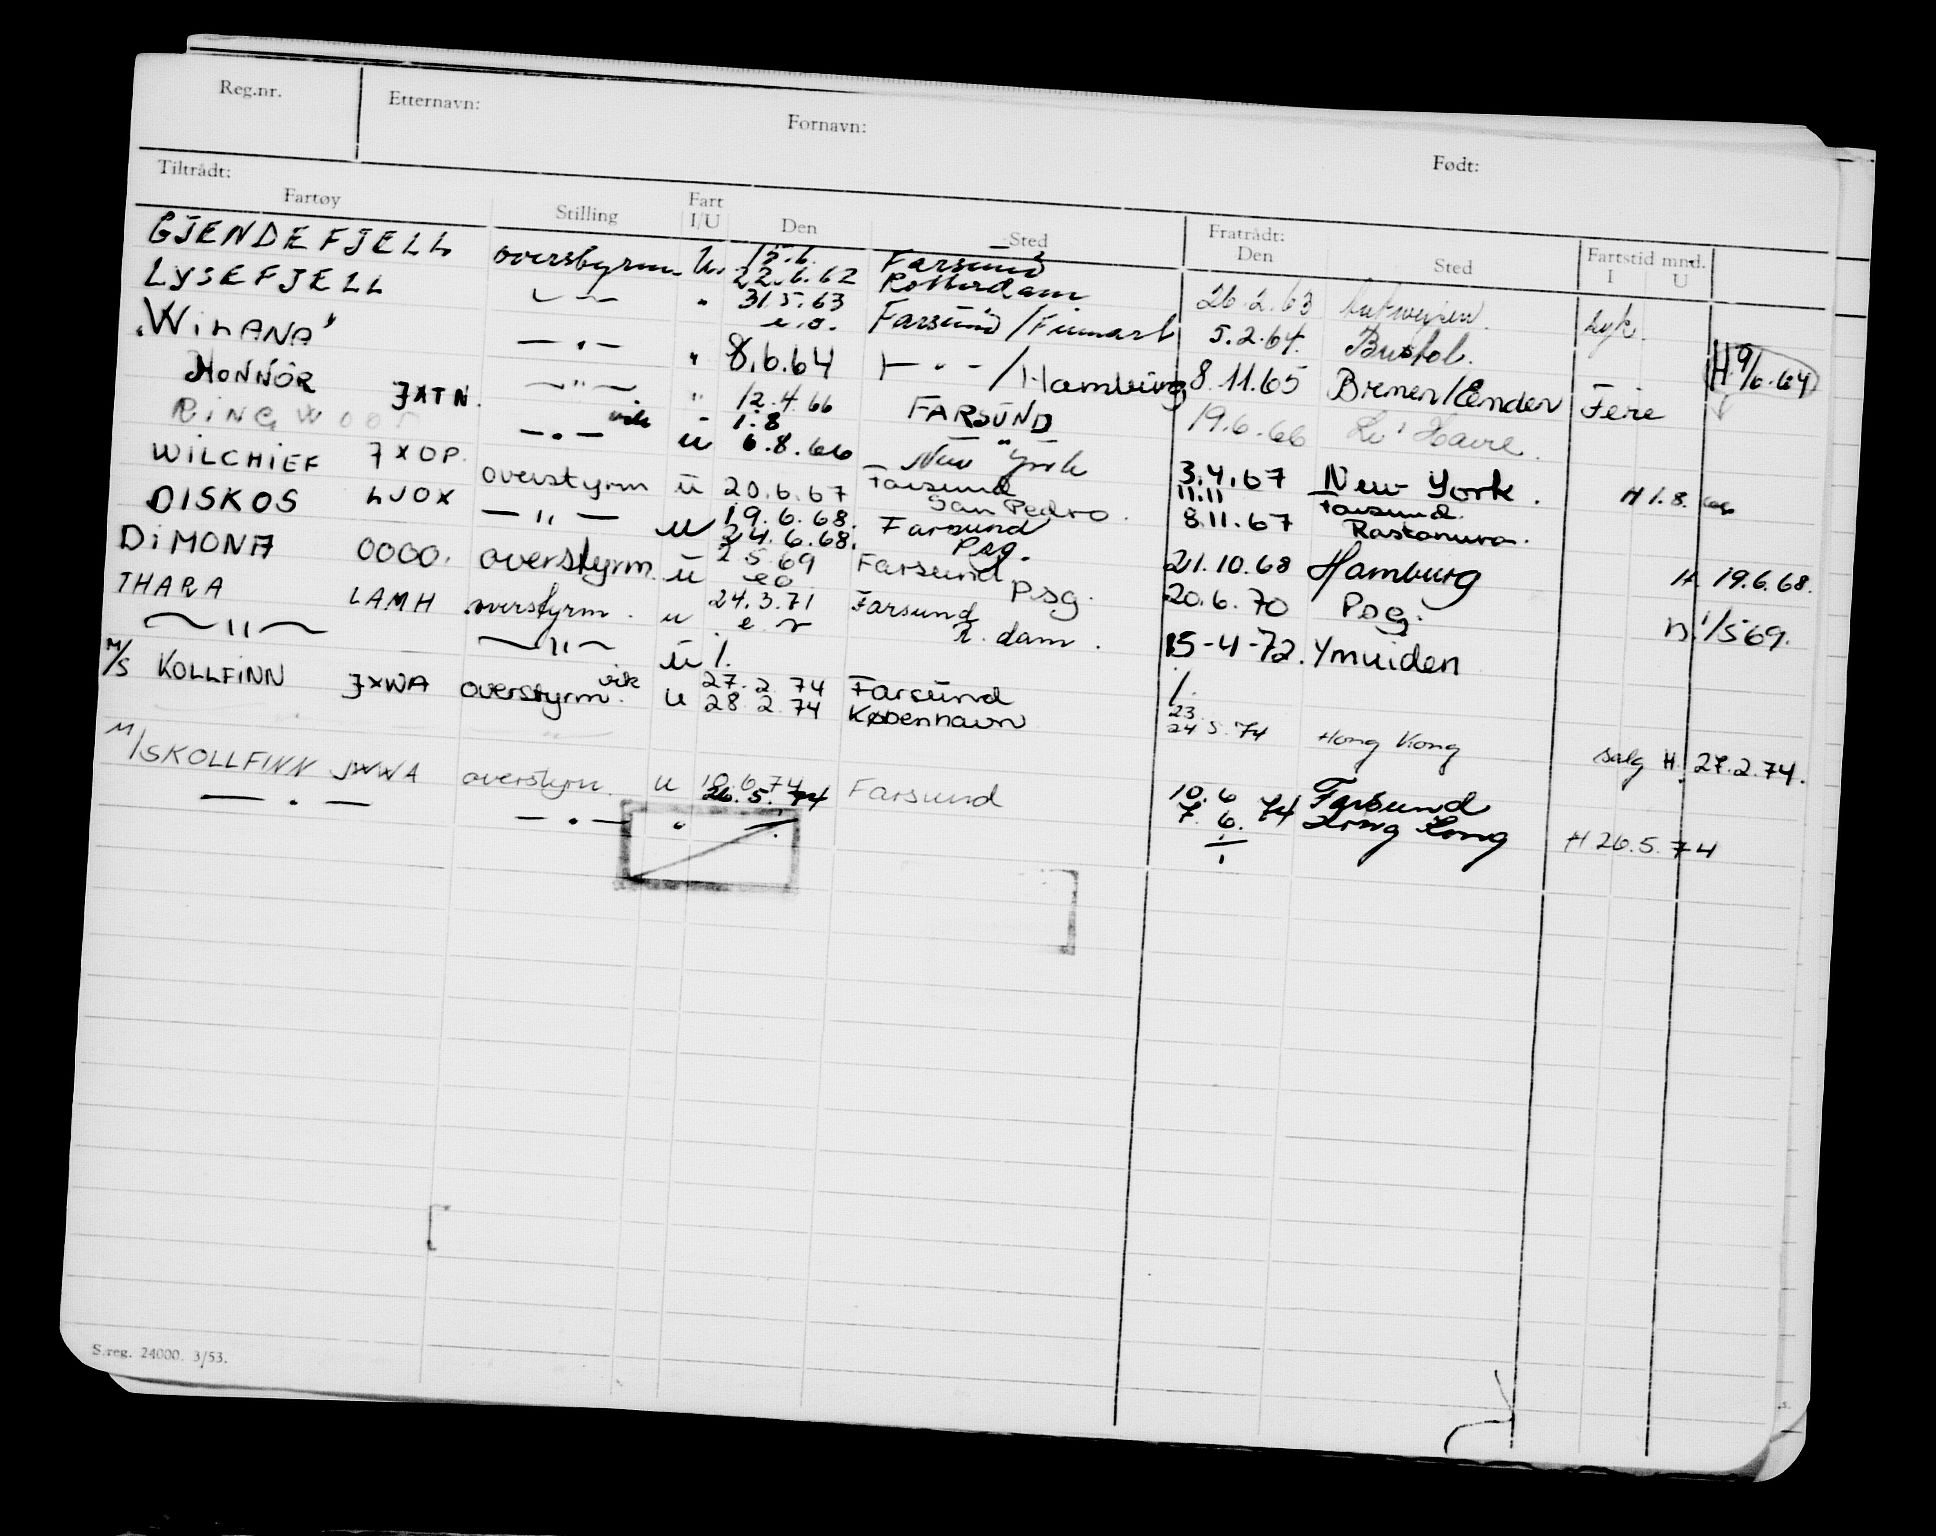 Reg.nr. Etternavn: Fornavn: Født:
Tiltrådt: Fratrådt: Fartstid mnd.
Fartøy Stilling Fart I/U Den Sted Den Sted I U
GJENDEFJELL overstyrm. u. 15.6. Farsund
22.6.62 Rotterdam 26.2.63 Antwerpen. syk.
LYSEFJELL — " — " 31.5.63 Farsund / Finnart 5.2.64. Bristol.
e.o.
"WILANA" — " — " 8.6.64 — " — / Hamburg 8.11.65 Bremen/Emden Ferie H 9/6.64
HONNØR JXTN. — " — " 12.4.66 FARSUND 19.6.66 Le Havre.
RINGWOOD — " — vik " 1.8 "
u 6.8.66 New York 3.4.67 New York. H 1.8. 66
WILCHIEF JXOP. overstyrm u 20.6.67 Farsund San Pedro. 11.11 Farsund.
8.11.67 Rastanura.
DISKOS LJOX — " — u 19.6.68. Farsund
24.6.68. Psg. 21.10.68 Hamburg H 19.6.68.
DIMONA overstyrm. u 2.5.69 Farsund Psg. 20.6.70 Psg. 1/5 69.
eo
THARA LAMH overstyrm. u 24.3.71 Farsund
e.r R.dam. 15-4-72. Ymuiden
— " — — " — u /. /.
M/S KOLLFINN JXWA overstyrm. vik u 27.2.74 Farsund 23.
28.2.74 København 24.5.74 Hong Kong salg H. 27.2.74.
M/S KOLLFINN JXWA overstyrm. u 10.6.74 Farsund 10.6 Farsund
26.5.74 7.6.74 Hong Kong H 26.5.74
— " — — " — "
S.reg. 24000. 3/53.